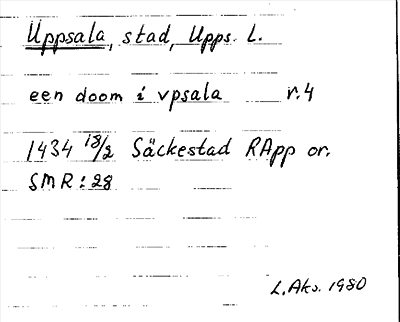 Uppsala, stad, Upps. L.
een doom i vpsala r. 4
1434 18/2 Säckestad RApp or.
SMR: 28
L. Aks. 1980